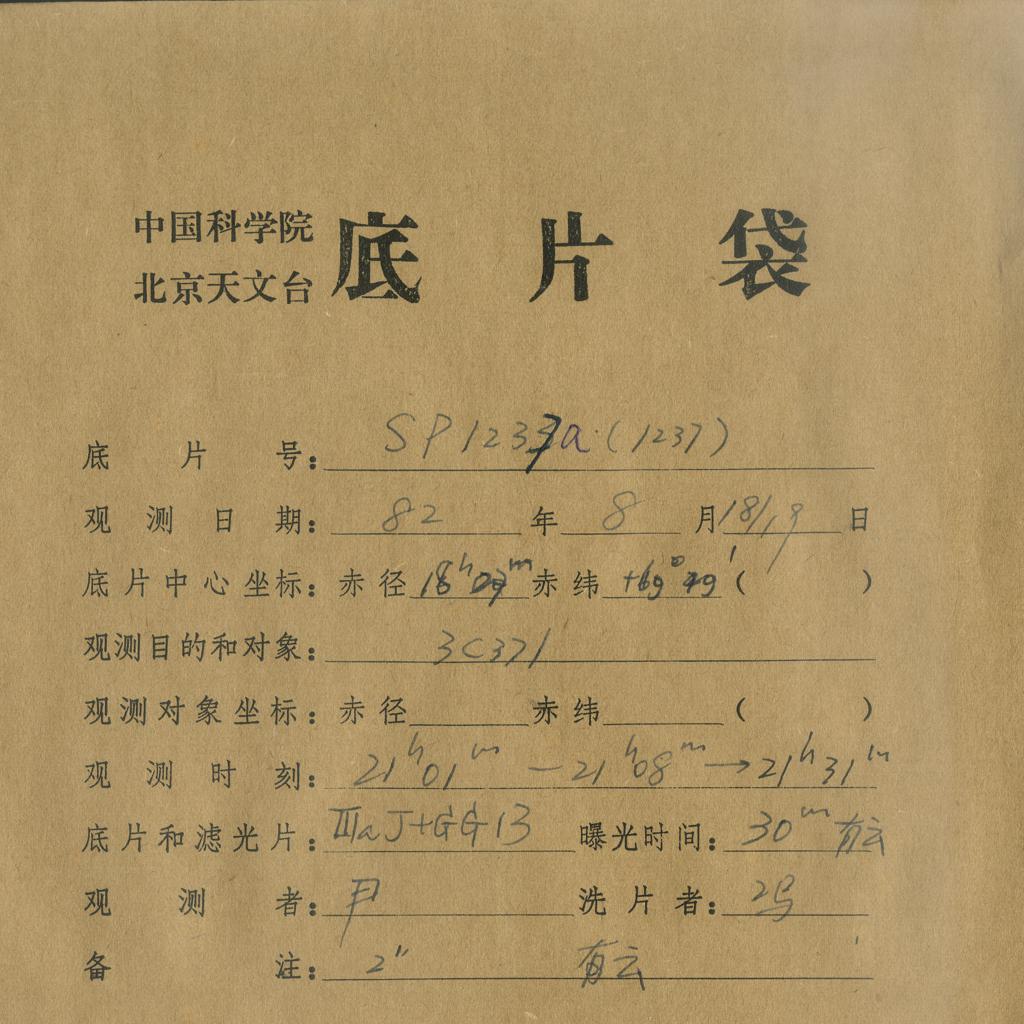 中国科学院
北京天文台
底片袋
底片号: SP1237a (1237)
观测日期: 82 年 8 月 18/19 日
底片中心坐标: 赤径 18ʰ 07ᵐ 赤纬 +69° 49′ ( )
观测目的和对象: 3C371
观测对象坐标: 赤径 赤纬 ( )
观测时刻: 21ʰ01ᵐ — 21ʰ08ᵐ → 21ʰ31ᵐ
底片和滤光片: ⅢaJ+GG13 曝光时间: 30ᵐ 有云
观测者: 尹 洗片者: 冯
备注: 2″ 有云